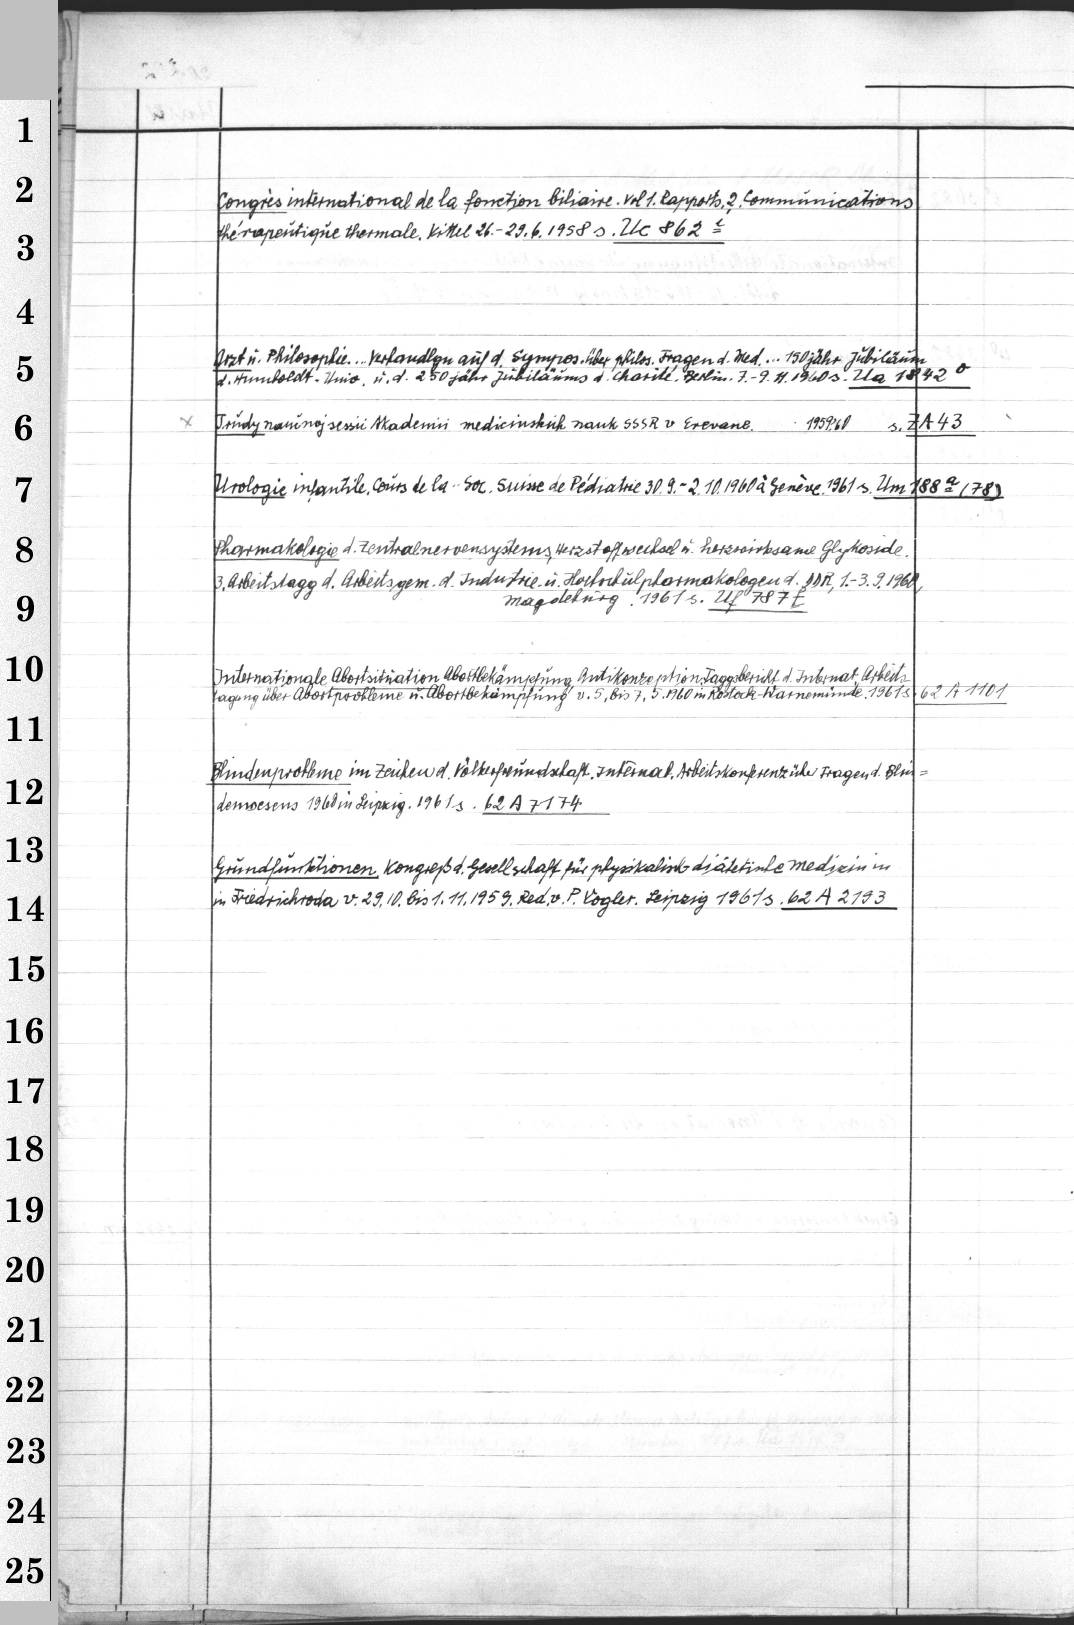 1
2
Congrès international de la fonction biliaire. Vol 1. Rapports, 2. Communications
3
thérapeutique thermale. Vittel 26.-29.6.1958 s. Uc 862 i
4
5
Arzt u. Philosophie... Verhandlgn auf d. Sympos. über philos. Fragen d. Med... 150jähr Jubiläum
d. Humboldt-Univ. u. d. 250jähr Jubiläums d. Charité. Berlin. 7.-9.11.1960 s. Ua 1842 o
6
x Trudy naučnoj sessii Akademii medicinskih nauk SSSR v Erevane. 1959:60 s. ZA 43
7
Urologie infantile. Cours de la Soc. Suisse de Pédiatrie 30.9.-2.10.1960 à Genève. 1961 s. Um 188 a (78)
8
Pharmakologie d. Zentralnervensystems, Herzstoffwechsel u. herzwirksame Glykoside.
3. Arbeitstagg d. Arbeitsgem. d. Industrie u. Hochschulpharmakologen d. DDR, 1.-3.9.1960,
9
Magdeburg. 1961 s. Uf 787 f
10
Internationale Abortsituation Abortbekämpfung Antikonzeption. Taggsbericht d. Internat. Arbeits
tagung über Abortprobleme u. Abortbekämpfung v. 5. bis 7. 5. 1960 in Rostock-Warnemünde. 1961 s. 62 A 1101
11
Blindenprobleme im Zeichen d. Völkerfreundschaft. Internat. Arbeitskonferenz über Fragen d. Blin=
12
denwesens 1960 in Leipzig. 1961 s. 62 A 7174
13
Grundfunktionen. Kongreß d. Gesellschaft für physikalisch diätetische Medizin in
14
in Friedrichroda v. 29.10. bis 1.11.1959. Red. v. P. Vogler. Leipzig 1961 s. 62 A 2193
15
16
17
18
19
20
21
22
23
24
25